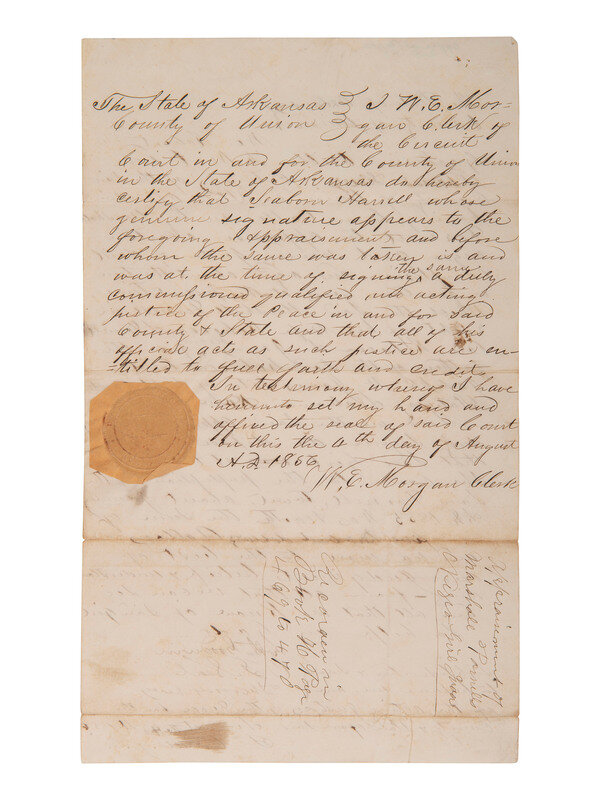 The State of Arkansas I W. E. Mor-
County of Union gan Clerk of
the Circuit
Court in and for the County of Union
in the State of Arkansas do hereby
certify that Seaborn Harrell whose
genuine signature appears to the
foregoing Appraisement and before
whom the same was taken is and
was at the time of signing the same a duly
commissioned qualified and acting
justice of the Peace in and for said
County & State and that all of his
official acts as such justice are en-
=titled to full faith and credit.
In testimony whereof I have
hereunto set my hand and
affixed the seal of said Court
on this the 4th day of August
A.D. 1856
W. E. Morgan Clerk
Appraisement of
Marshall
Negro Girl
Recorded in
Book H Page
469 to 470